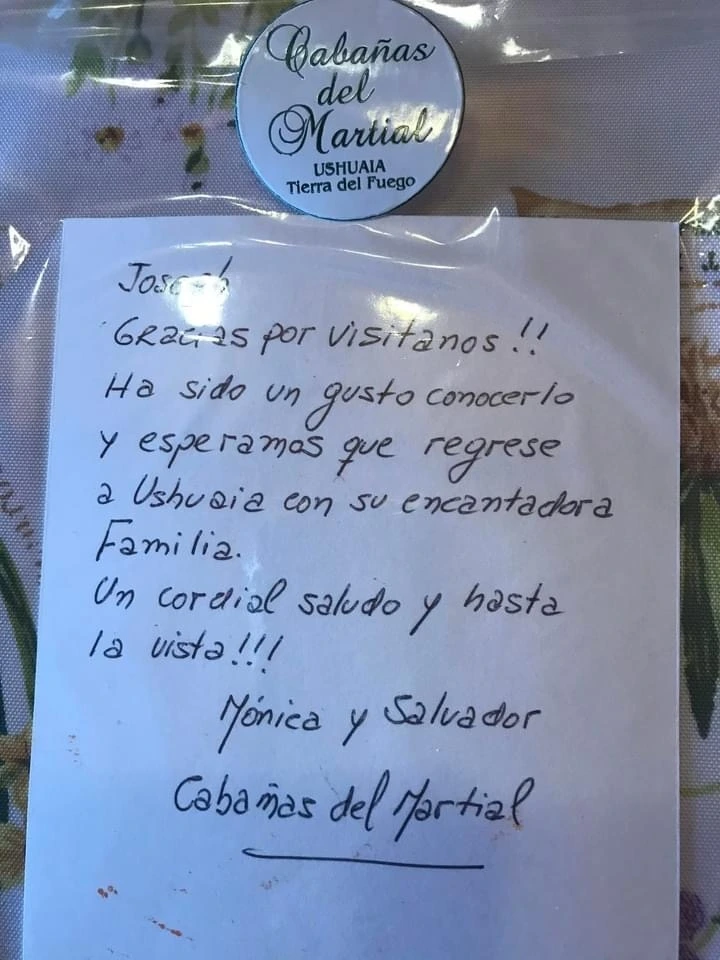 Cabañas
del
Martial
USHUAIA
Tierra del Fuego
Joseph
Gracias por visitanos!!
Ha sido un gusto conocerlo
y esperamos que regrese
a Ushuaia con su encantadora
Familia.
Un cordial saludo y hasta
la vista!!!
Mónica y Salvador
Cabañas del Martial